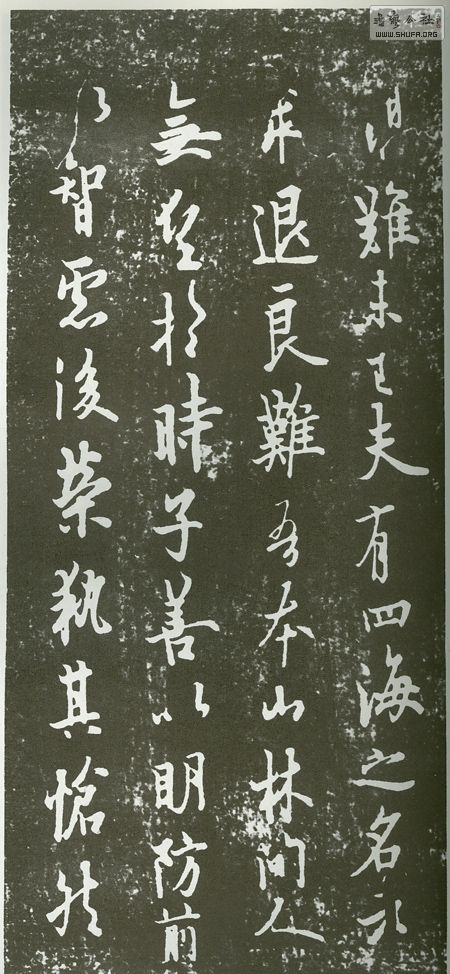 書藝公社
WWW.SHUFA.ORG
禍難未已夫有四海之名者
求退良難吾本山林間人
無望於時子善以明防前
以智慮後榮執其愴然